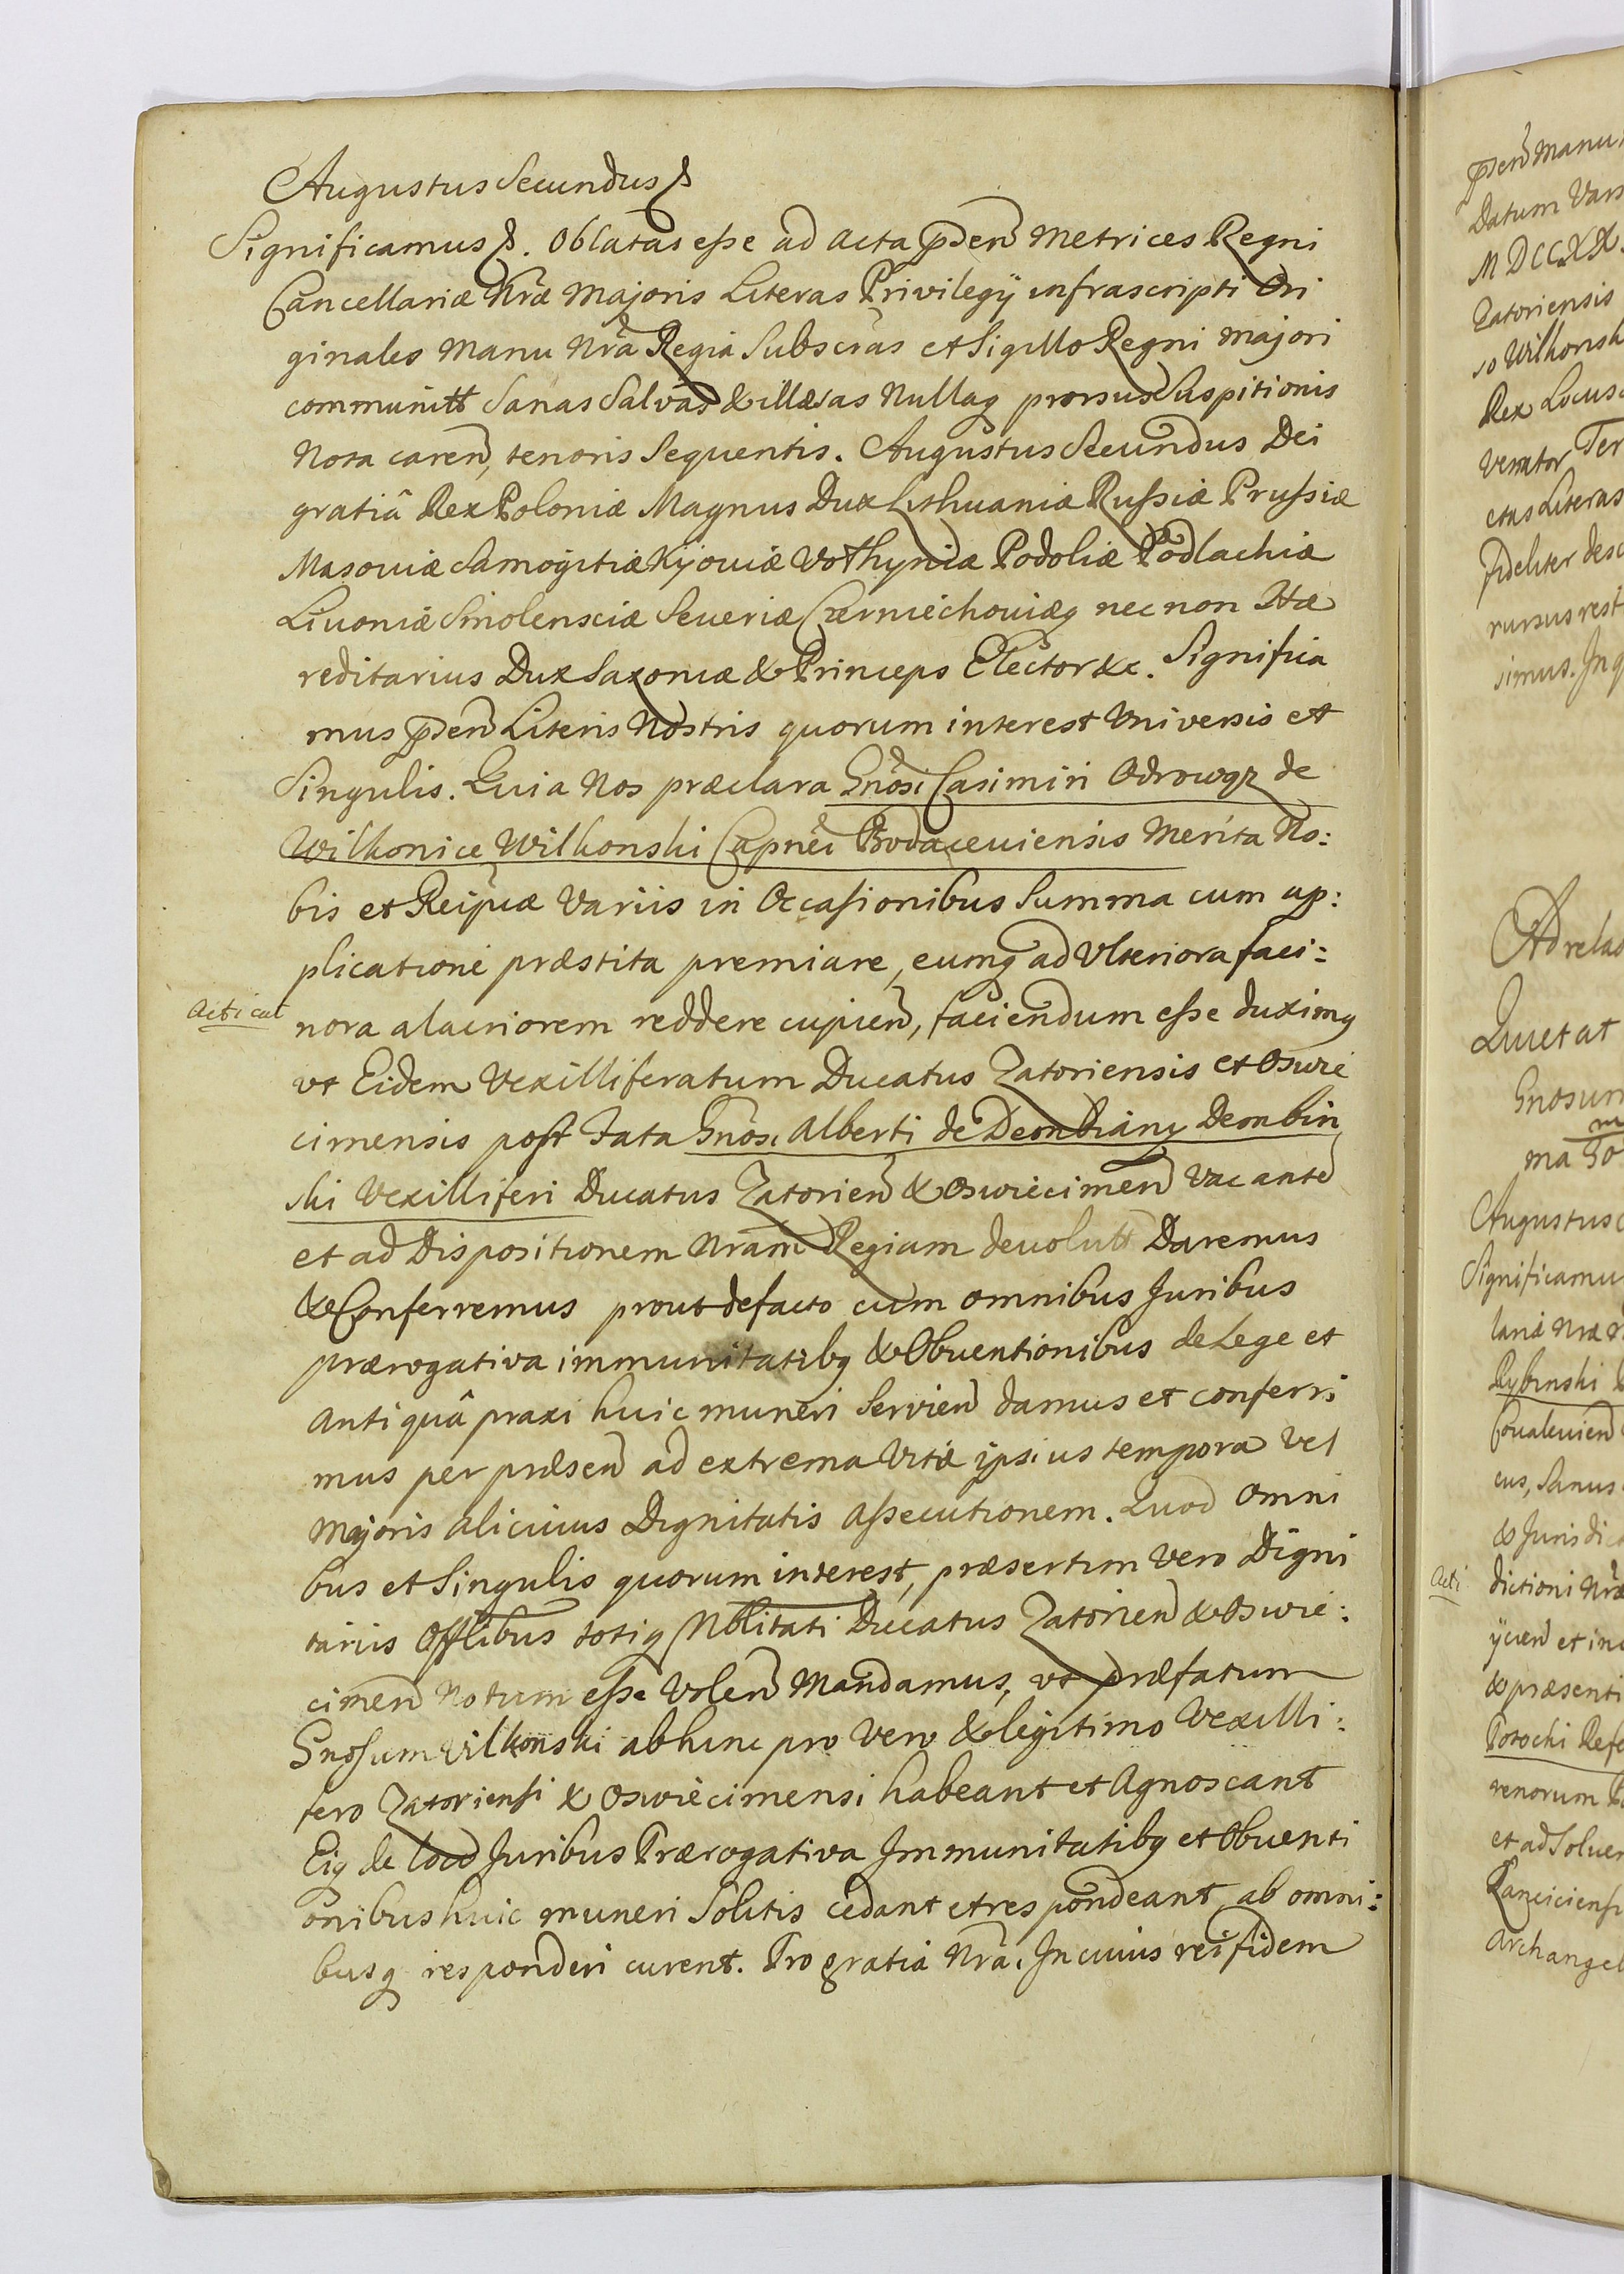 Augustus Secundus &
Significamus &. Oblatas esse ad acta pñsen Metrices Regni
Cancellariæ Nræ Majoris Literas Privilegÿ infrascripti Ori
ginales manu Nrâ Regia Subscras et Sigillo Regni majori
communitt Sanas Salvas & illæsas Nullaq prorsus Suspitionis
Nota caren, tenoris Sequentis. Augustus Secundus Dei
gratiâ Rex Poloniæ Magnus Dux Lithuaniæ Russiæ Prussiæ
Masouiæ Samogitiæ Kijouiæ Volhyniæ Podoliæ Podlachiæ
Liuoniæ Smolensciæ Seueriæ Czerniechouiæq nec non Hæ
reditarius Dux Saxoniæ & Princeps Elector &c. Significa
mus pñsen Literis Nostris quorum interest Vniversis et
Singulis. Quia Nos præclara Gnosi Casimiri Odrowąz de
Wilkonice Wilkonski Capnei Bodaceuiensis Merita No:
bis et Reipcæ Variis in Occasionibus Summa cum ap:
plicatione præstita premiare, eumq ad Vlteriora faci:
Acticat
nora alacriorem reddere cupien, faciendum esse duximq
vt Eidem Vexilliferatum Ducatus Zatoriensis et Oswie
cimensis post Fata Gnosi Alberti de Dembiany Dembin
ski Vexilliferi Ducatus Zatorien & Oswiecimen Vacante
et ad Dispositionem Nram Regiam deuolutt Daremus
& Conferremus prout defacto cum omnibus Juribus
prærogativa immunitatibq & Obuentionibus de Lege et
Antiquâ praxi huic muneri Servien damus et conferri
mus per præsen ad extrema Vitæ ipsius tempora vel
Majoris alicuius Dignitatis Assecutionem. Quod Omni
bus et Singulis quorum interest, præsertim Vero Digni
tariis Offlibus totiq Nblitati Ducatus Zatorien & Oswie:
cimen Notum esse Volen Mandamus, vt præfatum
Gnosum Vilkonski abhinc pro Vero & legitimo Vexilli:
fero Zatoriensi & Oswiecimensi habeant et Agnoscant
Eiq de loco Juribus Prærogativa Immunitatibq et Obuenti
onibus huic muneri Solitis cedant et respondeant ab omni:
busq responderi curent. Pro gratiâ Nrâ. In cuius rei fidem
pñsen manu
Datum Vars
MDCCXX
Zatoriensis
so Wilkonsk
Rex Locus
Venator Ter
ctas Literas
fideliter desc
rursus rest
simus. In q
Ad relac
Quietat
Gnosum
ma Go
Augustus
Significamu
lariæ Nræ
Rybinski
eus, Sanus
& Juris dic
Acti
dictioni Nræ
& præsenti
Potocki Refe
renorum
et ad Soluen
Archangel